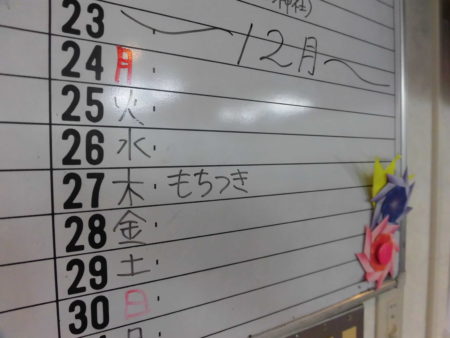 神社)
23 12月
24 月
25 火
26 水
27 木 もちつき
28 金
29 土
30 日
月